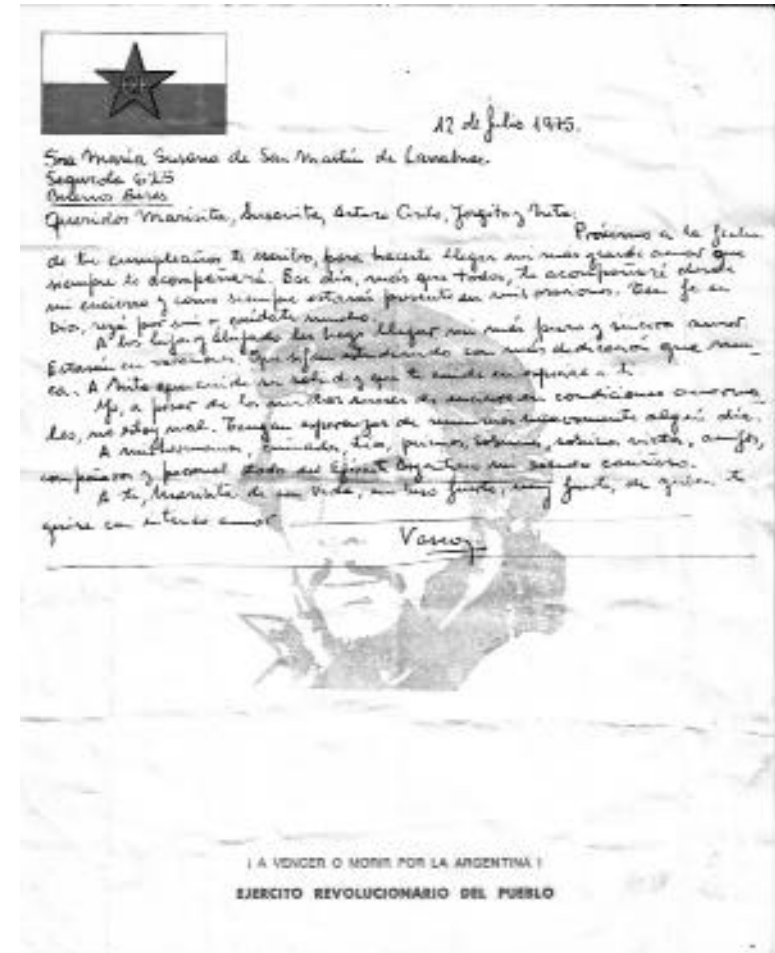 12 de Julio 1975.
Sra María Susana de San Martín de Larrabure.
Segurola 625
Buenos Aires
Queridos Marisita, Susanita, Arturo Cirilo, Jorgito y
Próximo a la fecha
de tu cumpleaños te escribo, para hacerte llegar mi más grande amor que
siempre te acompañará. Ese día, más que todos, te acompañaré desde
mi encierro y como siempre estarás presente en mis oraciones. Ten fe en
Dios, rezá por mí y cuídate mucho.
A los hijos y les hago llegar mi más puro y sincero amor.
Estarán en vacaciones. Que sigan estudiando con más dedicación que nun-
ca. A que cuide su salud y que te cuide en especial a ti.
Yo, a pesar de los meses de encierro en condiciones anorma-
les, no estoy mal. Tengan esperanzas de reunirnos nuevamente algún día.
A mi hermano, cuñada, tíos, primos, sobrinos, amigos,
compañeros y personal todo del Ejército Argentino mi saludo cariñoso.
A ti, Marisita de mi vida, un beso fuerte, muy fuerte, de quien te
quiere con intenso amor
Vasco
¡ A VENCER O MORIR POR LA ARGENTINA !
EJERCITO REVOLUCIONARIO DEL PUEBLO